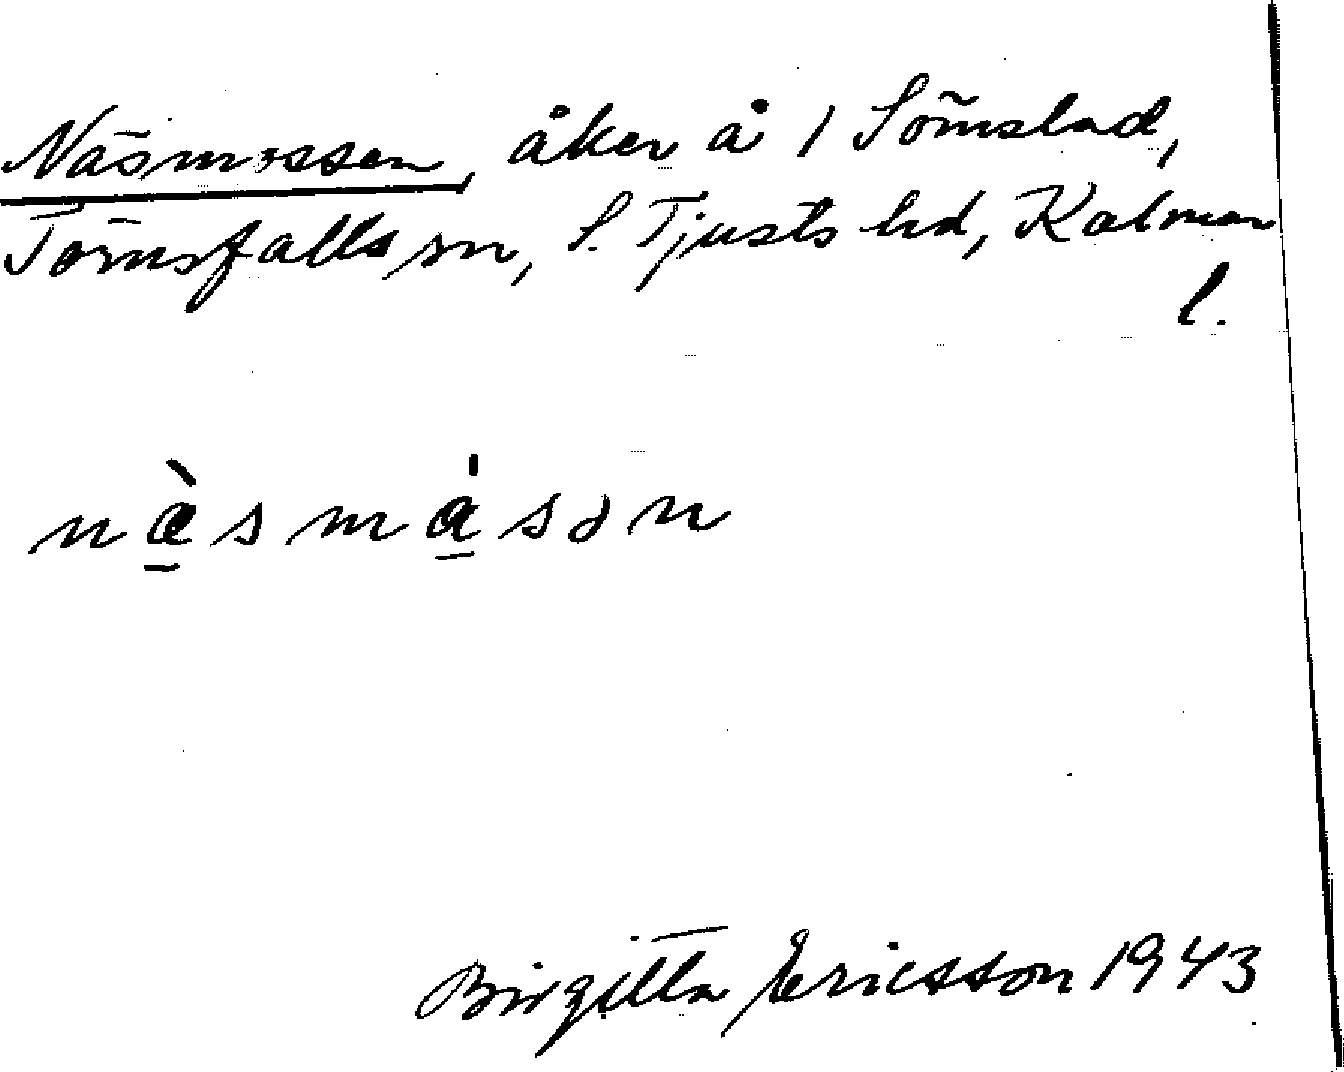 Näsmossen, åker å 1 Sömstad,
Törnsfalls sn, S. Tjusts hd, Kalmar
l.
nàsmásən
Birgitta Ericsson 1943